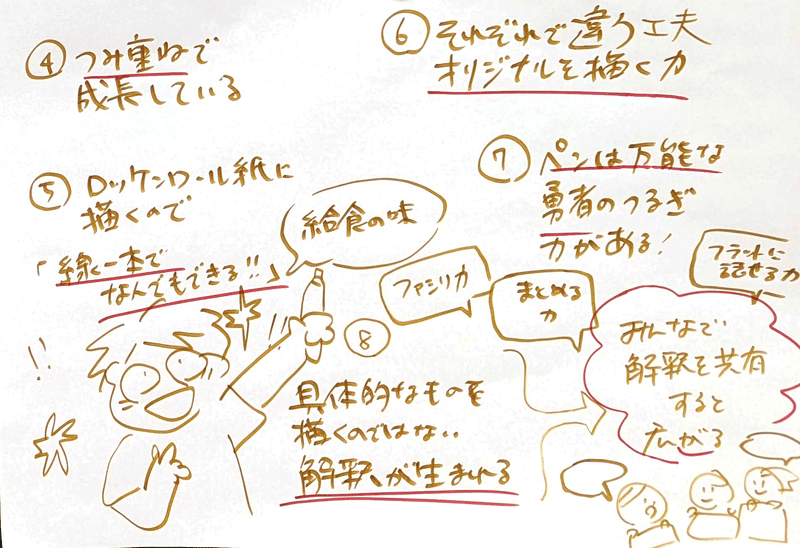 ④ つみ重ねで
成長している
⑥ それぞれで違う工夫
オリジナルを描く力
⑤ ロッケンロール紙に
描くので
「線一本で
なんでもできる!!」
⑦ ペンは万能な
勇者のつるぎ
力がある!
給食の味
ファシリ力
まとめる
力
フラットに
話せる力
!!
⑧
具体的なものを
描くのではない
解釈が生まれる
みんなで
解釈を共有
すると
広がる